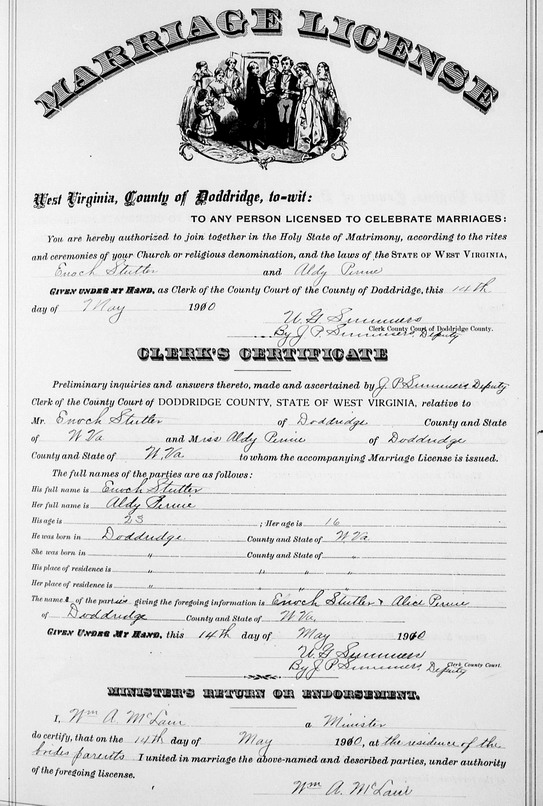 MARRIAGE LICENSE
West Virginia, County of Doddridge, to-wit:
TO ANY PERSON LICENSED TO CELEBRATE MARRIAGES:
You are hereby authorized to join together in the Holy State of Matrimony, according to the rites
and ceremonies of your Church or religious denomination, and the laws of the STATE OF WEST VIRGINIA,
Enoch Stutler and Aldy Perine
GIVEN UNDER MY HAND, as Clerk of the County Court of the County of Doddridge, this 14th
day of May 1900
W. G. Summers
Clerk County Court of Doddridge County.
By J. P. Summers, Deputy
CLERK'S CERTIFICATE
Preliminary inquiries and answers thereto, made and ascertained by J. P. Summers Deputy
Clerk of the County Court of DODDRIDGE COUNTY, STATE OF WEST VIRGINIA, relative to
Mr. Enoch Stutler of Doddridge County and State
of W Va and Miss Aldy Perine of Doddridge
County and State of W. Va. to whom the accompanying Marriage License is issued.
The full names of the parties are as follows:
His full name is Enoch Stutler
Her full name is Aldy Perine
His age is 23 ; Her age is 16
He was born in Doddridge County and State of W Va
She was born in " County and State of "
His place of residence is " " " "
Her place of residence is " " " "
The names of the parties giving the foregoing information is Enoch Stutler & Alice Perine
of Doddridge County and State of W. Va.
GIVEN UNDER MY HAND, this 14th day of May 1900
W. G. Summers
Clerk County Court.
By J. P. Summers, Deputy
MINISTER'S RETURN OR ENDORSEMENT.
I, Wm A. McLain a Minister
do certify, that on the 14th day of May 1900, at the residence of the
brides parents I united in marriage the above-named and described parties, under authority
of the foregoing liscense.
Wm A. McLain